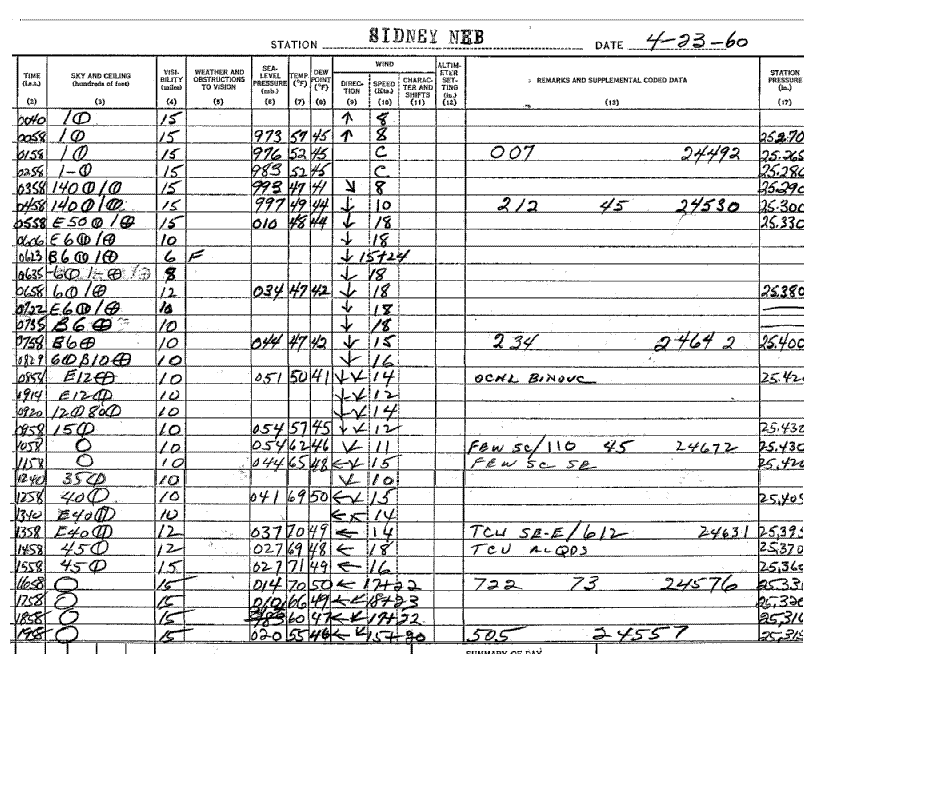 STATION SIDNEY NEB DATE 4-23-60
WIND
TIME (l.s.t.) (2) SKY AND CEILING (hundreds of feet) (3) VISIBILITY (miles) (4) WEATHER AND OBSTRUCTIONS TO VISION (5) SEA-LEVEL PRESSURE (mb.) (6) TEMP. (°F) (7) DEW POINT (°F) (8) DIRECTION (9) SPEED (Kts.) (10) CHARACTER AND SHIFTS (11) ALTIMETER SETTING (in.) (12) REMARKS AND SUPPLEMENTAL CODED DATA (13) STATION PRESSURE (in.) (17)
0040 1⦶ 15 ↑ 8
0058 1⦶ 15 973 57 45 ↑ 8 25.270
0158 1⦶ 15 976 52 45 C 007 24492 25.265
0258 1-⦶ 15 983 52 45 C 25.280
0358 140⦶/⦶ 15 993 47 41 ↘ 8 25.290
0458 140⦶/⦶ 15 997 49 44 ↓ 10 212 45 24530 25.300
0558 E50⦶/⊕ 15 010 48 44 ↓ 18 25.330
0606 E6⦷/⊕ 10 ↓ 18
0623 B6⦷/⊕ 6 F ↓ 15+24
0635 8 ↓ 18
0658 6⦶/⊕ 12 034 47 42 ↓ 18 25.380
0722 E6⦷/⊕ 10 ↓ 18
0735 B6⊕ 10 ↓ 18
0758 B6⊕ 10 044 47 42 ↓ 15 234 24642 25.400
0829 6⦶B10⊕ 10 ↓ 16
0858 E12⊕ 10 051 50 41 ↓↙ 14 OCNL BINOVC 25.42
0914 E12⦷ 10 ↓↙ 12
0920 12⦶80⦶ 10 ↓↙ 14
0958 15⦶ 10 054 57 45 ↓↙ 12 25.432
1058 O 10 054 62 46 ↙ 11 FEW SC/110 45 24672 25.430
1158 O 10 044 65 48 ←↙ 15 FEW SC SE 25.420
1240 35⦶ 10 ↙ 10
1258 40⦶ 10 041 69 50 ←↙ 15 25.405
1340 E40⦷ 10 ←↖ 14
1358 E40⦷ 12 037 70 49 ← 14 TCU SE-E/612 24631 25.395
1458 45⦶ 12 027 69 48 ← 18 TCU ALQDS 25.370
1558 45⦶ 15 027 71 49 ← 16 25.365
1658 O 15 014 70 50 ← 17+22 722 73 24576 25.33
1758 O 15 010 66 49 ←↙ 18+23 25.320
1858 O 15 60 47 ←↙ 17+22 25.310
1958 O 15 020 55 46 ←↙ 15+20 505 24557 25.315
SUMMARY OF DAY